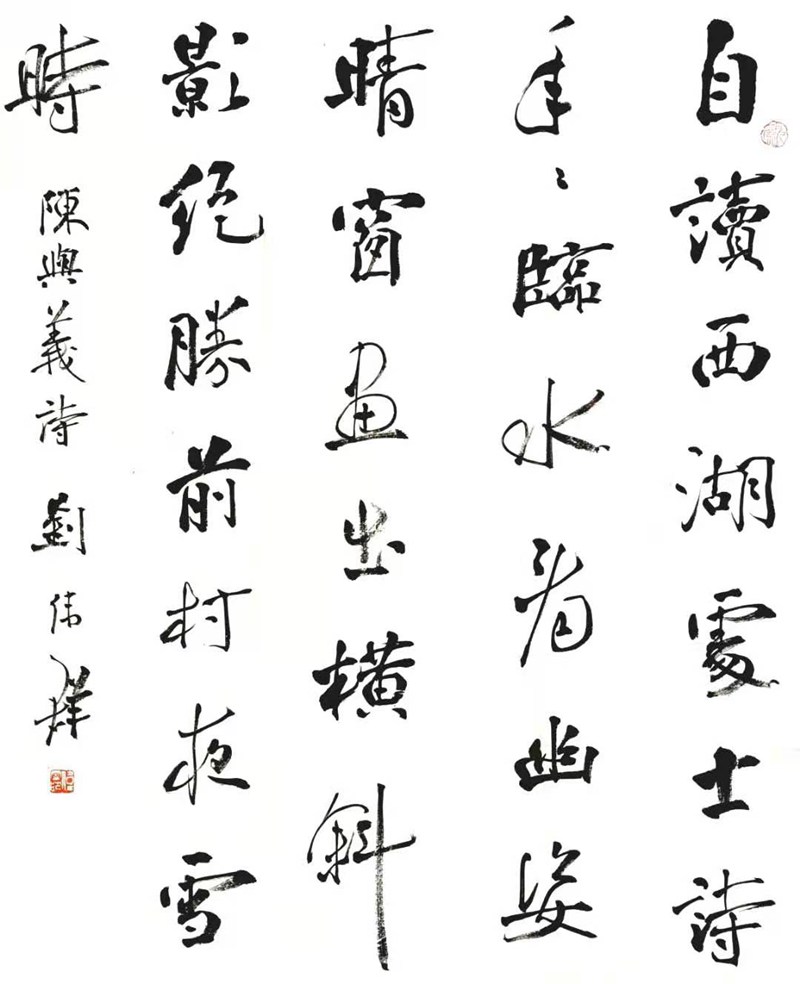 自讀西湖處士詩
年々臨水看幽姿
晴窗画出橫斜
影絕勝前村夜雪
時 陳與義詩 劉偉